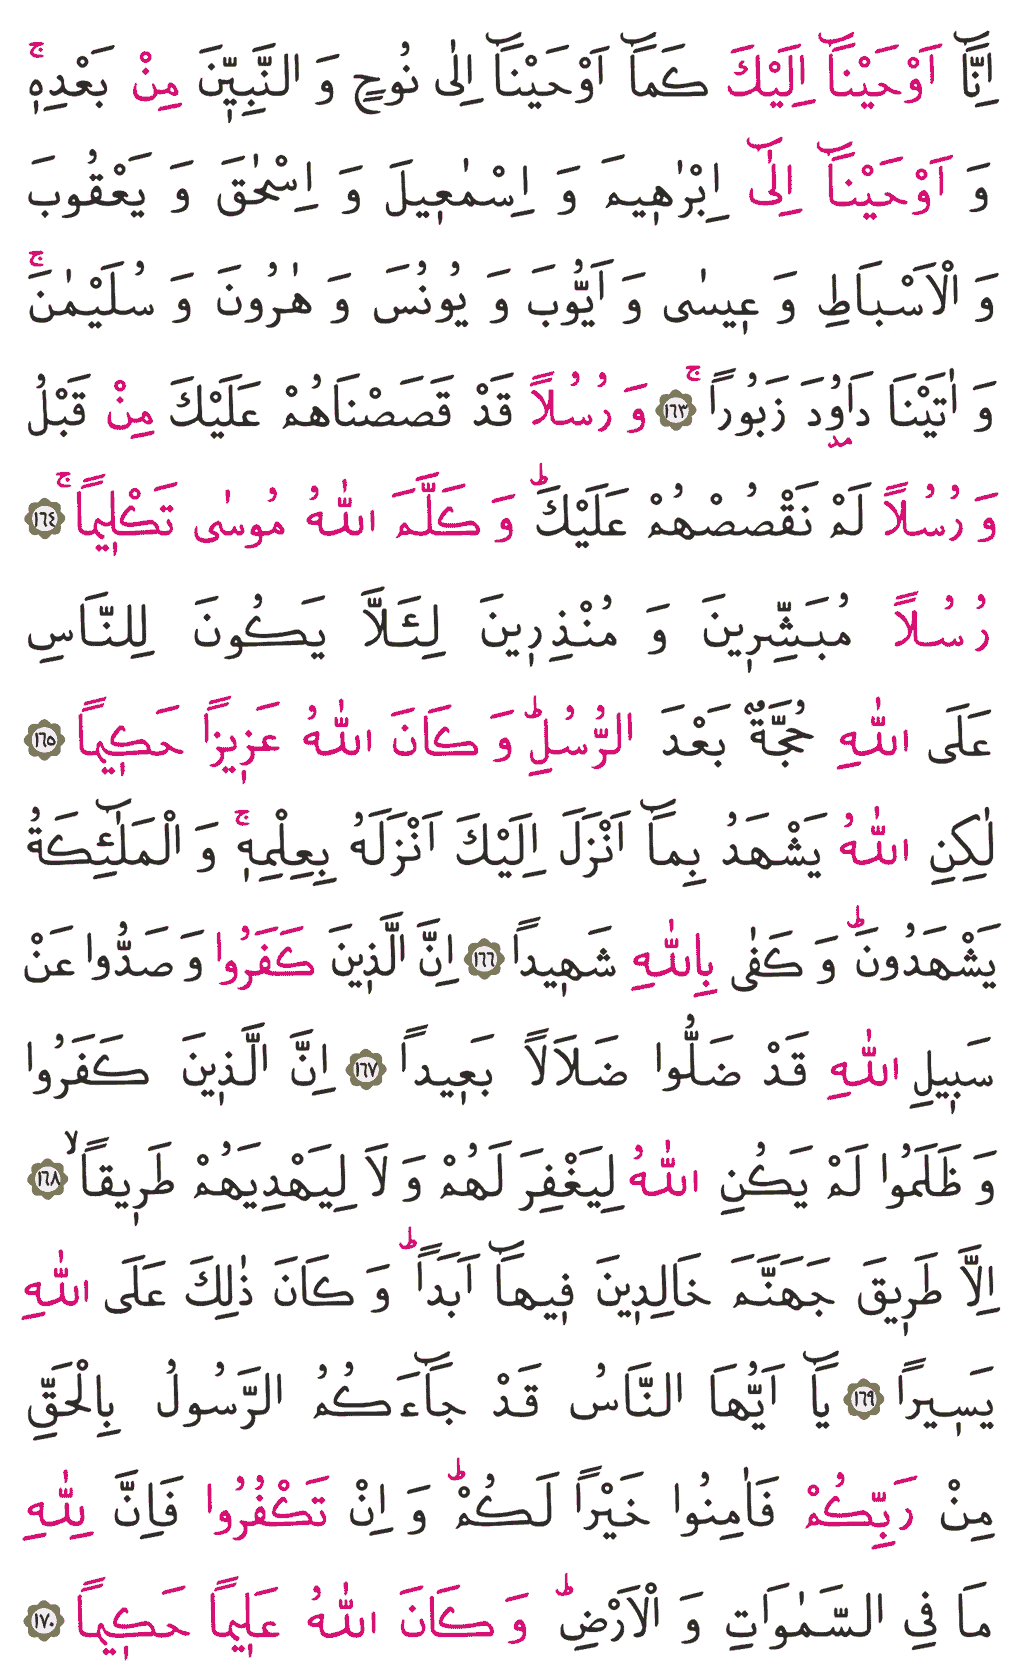 اِنَّٓا اَوْحَيْنَٓا اِلَيْكَ كَمَٓا اَوْحَيْنَٓا اِلٰى نُوحٍ وَ النَّبِيّ۪نَ مِنْ بَعْدِه۪ۚ
وَ اَوْحَيْنَٓا اِلٰٓى اِبْرٰه۪يمَ وَ اِسْمٰع۪يلَ وَ اِسْحٰقَ وَ يَعْقُوبَ
وَ الْاَسْبَاطِ وَ ع۪يسٰى وَ اَيُّوبَ وَ يُونُسَ وَ هٰرُونَ وَ سُلَيْمٰنَۚ
وَ اٰتَيْنَا دَاوُ۫دَ زَبُوراًۚ ﴿١٦٣﴾ وَ رُسُلاً قَدْ قَصَصْنَاهُمْ عَلَيْكَ مِنْ قَبْلُ
وَ رُسُلاً لَمْ نَقْصُصْهُمْ عَلَيْكَۜ وَ كَلَّمَ اللّٰهُ مُوسٰى تَكْل۪يماًۚ ﴿١٦٤﴾
رُسُلاً مُبَشِّر۪ينَ وَ مُنْذِر۪ينَ لِئَلَّا يَكُونَ لِلنَّاسِ
عَلَى اللّٰهِ حُجَّةٌ بَعْدَ الرُّسُلِۜ وَ كَانَ اللّٰهُ عَز۪يزاً حَك۪يماً ﴿١٦٥﴾
لٰكِنِ اللّٰهُ يَشْهَدُ بِمَٓا اَنْزَلَ اِلَيْكَ اَنْزَلَهُ بِعِلْمِه۪ۚ وَ الْمَلٰٓئِكَةُ
يَشْهَدُونَۜ وَ كَفٰى بِاللّٰهِ شَه۪يداً ﴿١٦٦﴾ اِنَّ الَّذ۪ينَ كَفَرُوا وَ صَدُّوا عَنْ
سَب۪يلِ اللّٰهِ قَدْ ضَلُّوا ضَلَالاً بَع۪يداً ﴿١٦٧﴾ اِنَّ الَّذ۪ينَ كَفَرُوا
وَ ظَلَمُوا لَمْ يَكُنِ اللّٰهُ لِيَغْفِرَ لَهُمْ وَ لَا لِيَهْدِيَهُمْ طَر۪يقاًۙ ﴿١٦٨﴾
اِلَّا طَر۪يقَ جَهَنَّمَ خَالِد۪ينَ ف۪يهَٓا اَبَداًۜ وَ كَانَ ذٰلِكَ عَلَى اللّٰهِ
يَس۪يراً ﴿١٦٩﴾ يَٓا اَيُّهَا النَّاسُ قَدْ جَٓاءَكُمُ الرَّسُولُ بِالْحَقِّ
مِنْ رَبِّكُمْ فَاٰمِنُوا خَيْراً لَكُمْۜ وَ اِنْ تَكْفُرُوا فَاِنَّ لِلّٰهِ
مَا فِي السَّمٰوَاتِ وَ الْاَرْضِۜ وَ كَانَ اللّٰهُ عَل۪يماً حَك۪يماً ﴿١٧٠﴾